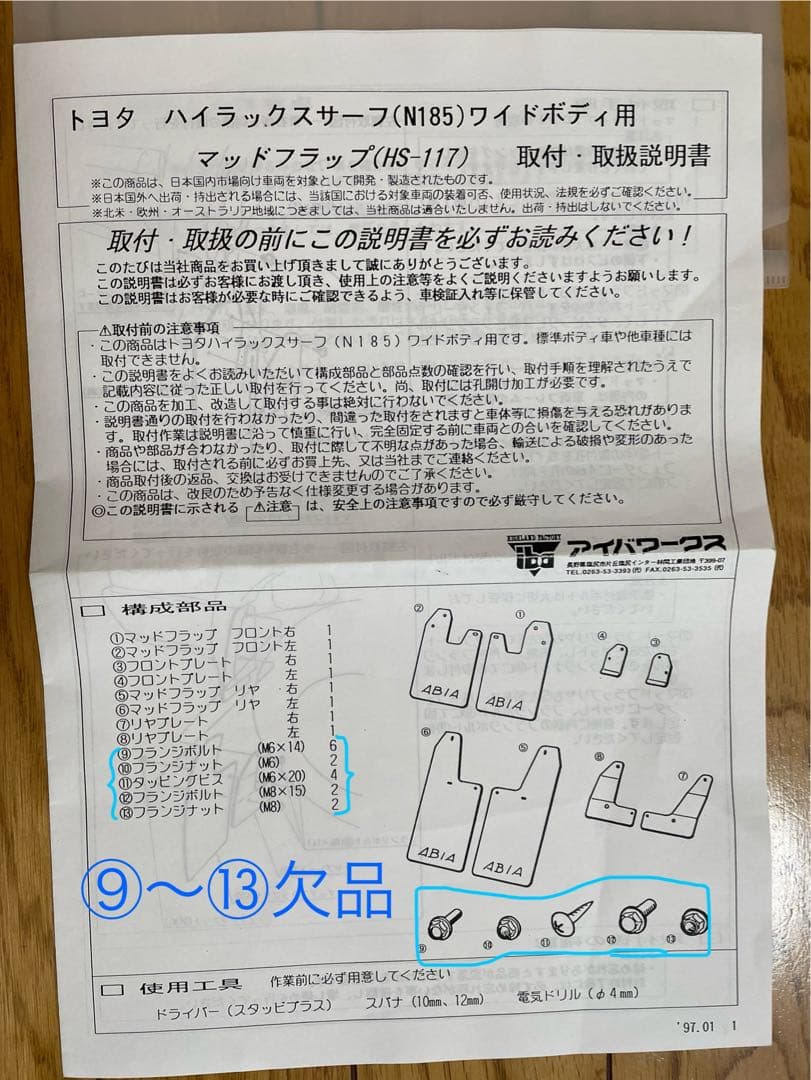 トヨタ ハイラックスサーフ(N185)ワイドボディ用
マッドフラップ(HS-117) 取付・取扱説明書
※この商品は、日本国内市場向け車両を対象として開発・製造されたものです。
※日本国外へ出荷・持出される場合には、当該国における対象車両の装着可否、使用状況、法規を必ずご確認ください。
※北米・欧州・オーストラリア地域につきましては、当社商品は適合いたしません。出荷・持出はしないでください。
取付・取扱の前にこの説明書を必ずお読みください!
このたびは当社商品をお買い上げ頂きまして誠にありがとうございます。
この説明書は必ずお客様にお渡し頂き、使用上の注意等をよくご説明くださいますようお願いします。
この説明書はお客様が必要な時にご確認できるよう、車検証入れ等に保管してください。
⚠取付前の注意事項
・この商品はトヨタハイラックスサーフ(N185)ワイドボディ用です。標準ボディ車や他車種には
取付できません。
・この説明書をよくお読みいただいて構成部品と部品点数の確認を行い、取付手順を理解されたうえで
記載内容に従った正しい取付を行ってください。尚、取付には孔開け加工が必要です。
・この商品を加工、改造して取付する事は絶対に行わないでください。
・説明書通りの取付を行わなかったり、間違った取付をされますと車体等に損傷を与える恐れがありま
す。取付作業は説明書に沿って慎重に行い、完全固定する前に車両との合いを確認してください。
・商品や部品が合わなかったり、取付に際して不明な点があった場合、輸送による破損や変形のあった
場合には、取付される前に必ずお買上先、又は当社までご連絡ください。
・商品取付後の返品、交換はお受けできませんのでご了承ください。
・この商品は、改良のため予告なく仕様変更する場合があります。
◎この説明書に示される ⚠注意 は、安全上の注意事項ですので必ず厳守してください。
HIGHLAND FACTORY
iba アイバワークス
長野県塩尻市片丘塩尻インター林間工業団地 〒399-07
TEL.0263-53-3393(代) FAX.0263-53-3535(代)
□ 構成部品
①マッドフラップ フロント右 1
②マッドフラップ フロント左 1
③フロントプレート 右 1
④フロントプレート 左 1
⑤マッドフラップ リヤ 右 1
⑥マッドフラップ リヤ 左 1
⑦リヤプレート 右 1
⑧リヤプレート 左 1
⑨フランジボルト (M6×14) 6
⑩フランジナット (M6) 2
⑪タッピングビス (M6×20) 4
⑫フランジボルト (M8×15) 2
⑬フランジナット (M8) 2
② ① ④ ③
ABIA ABIA
⑥ ⑤ ⑧ ⑦
ABIA ABIA
⑨〜⑬欠品
⑨ ⑩ ⑪ ⑫ ⑬
□ 使用工具 作業前に必ず用意してください
ドライバー(スタッビプラス) スパナ(10mm、12mm) 電気ドリル(φ4mm)
'97.01 1